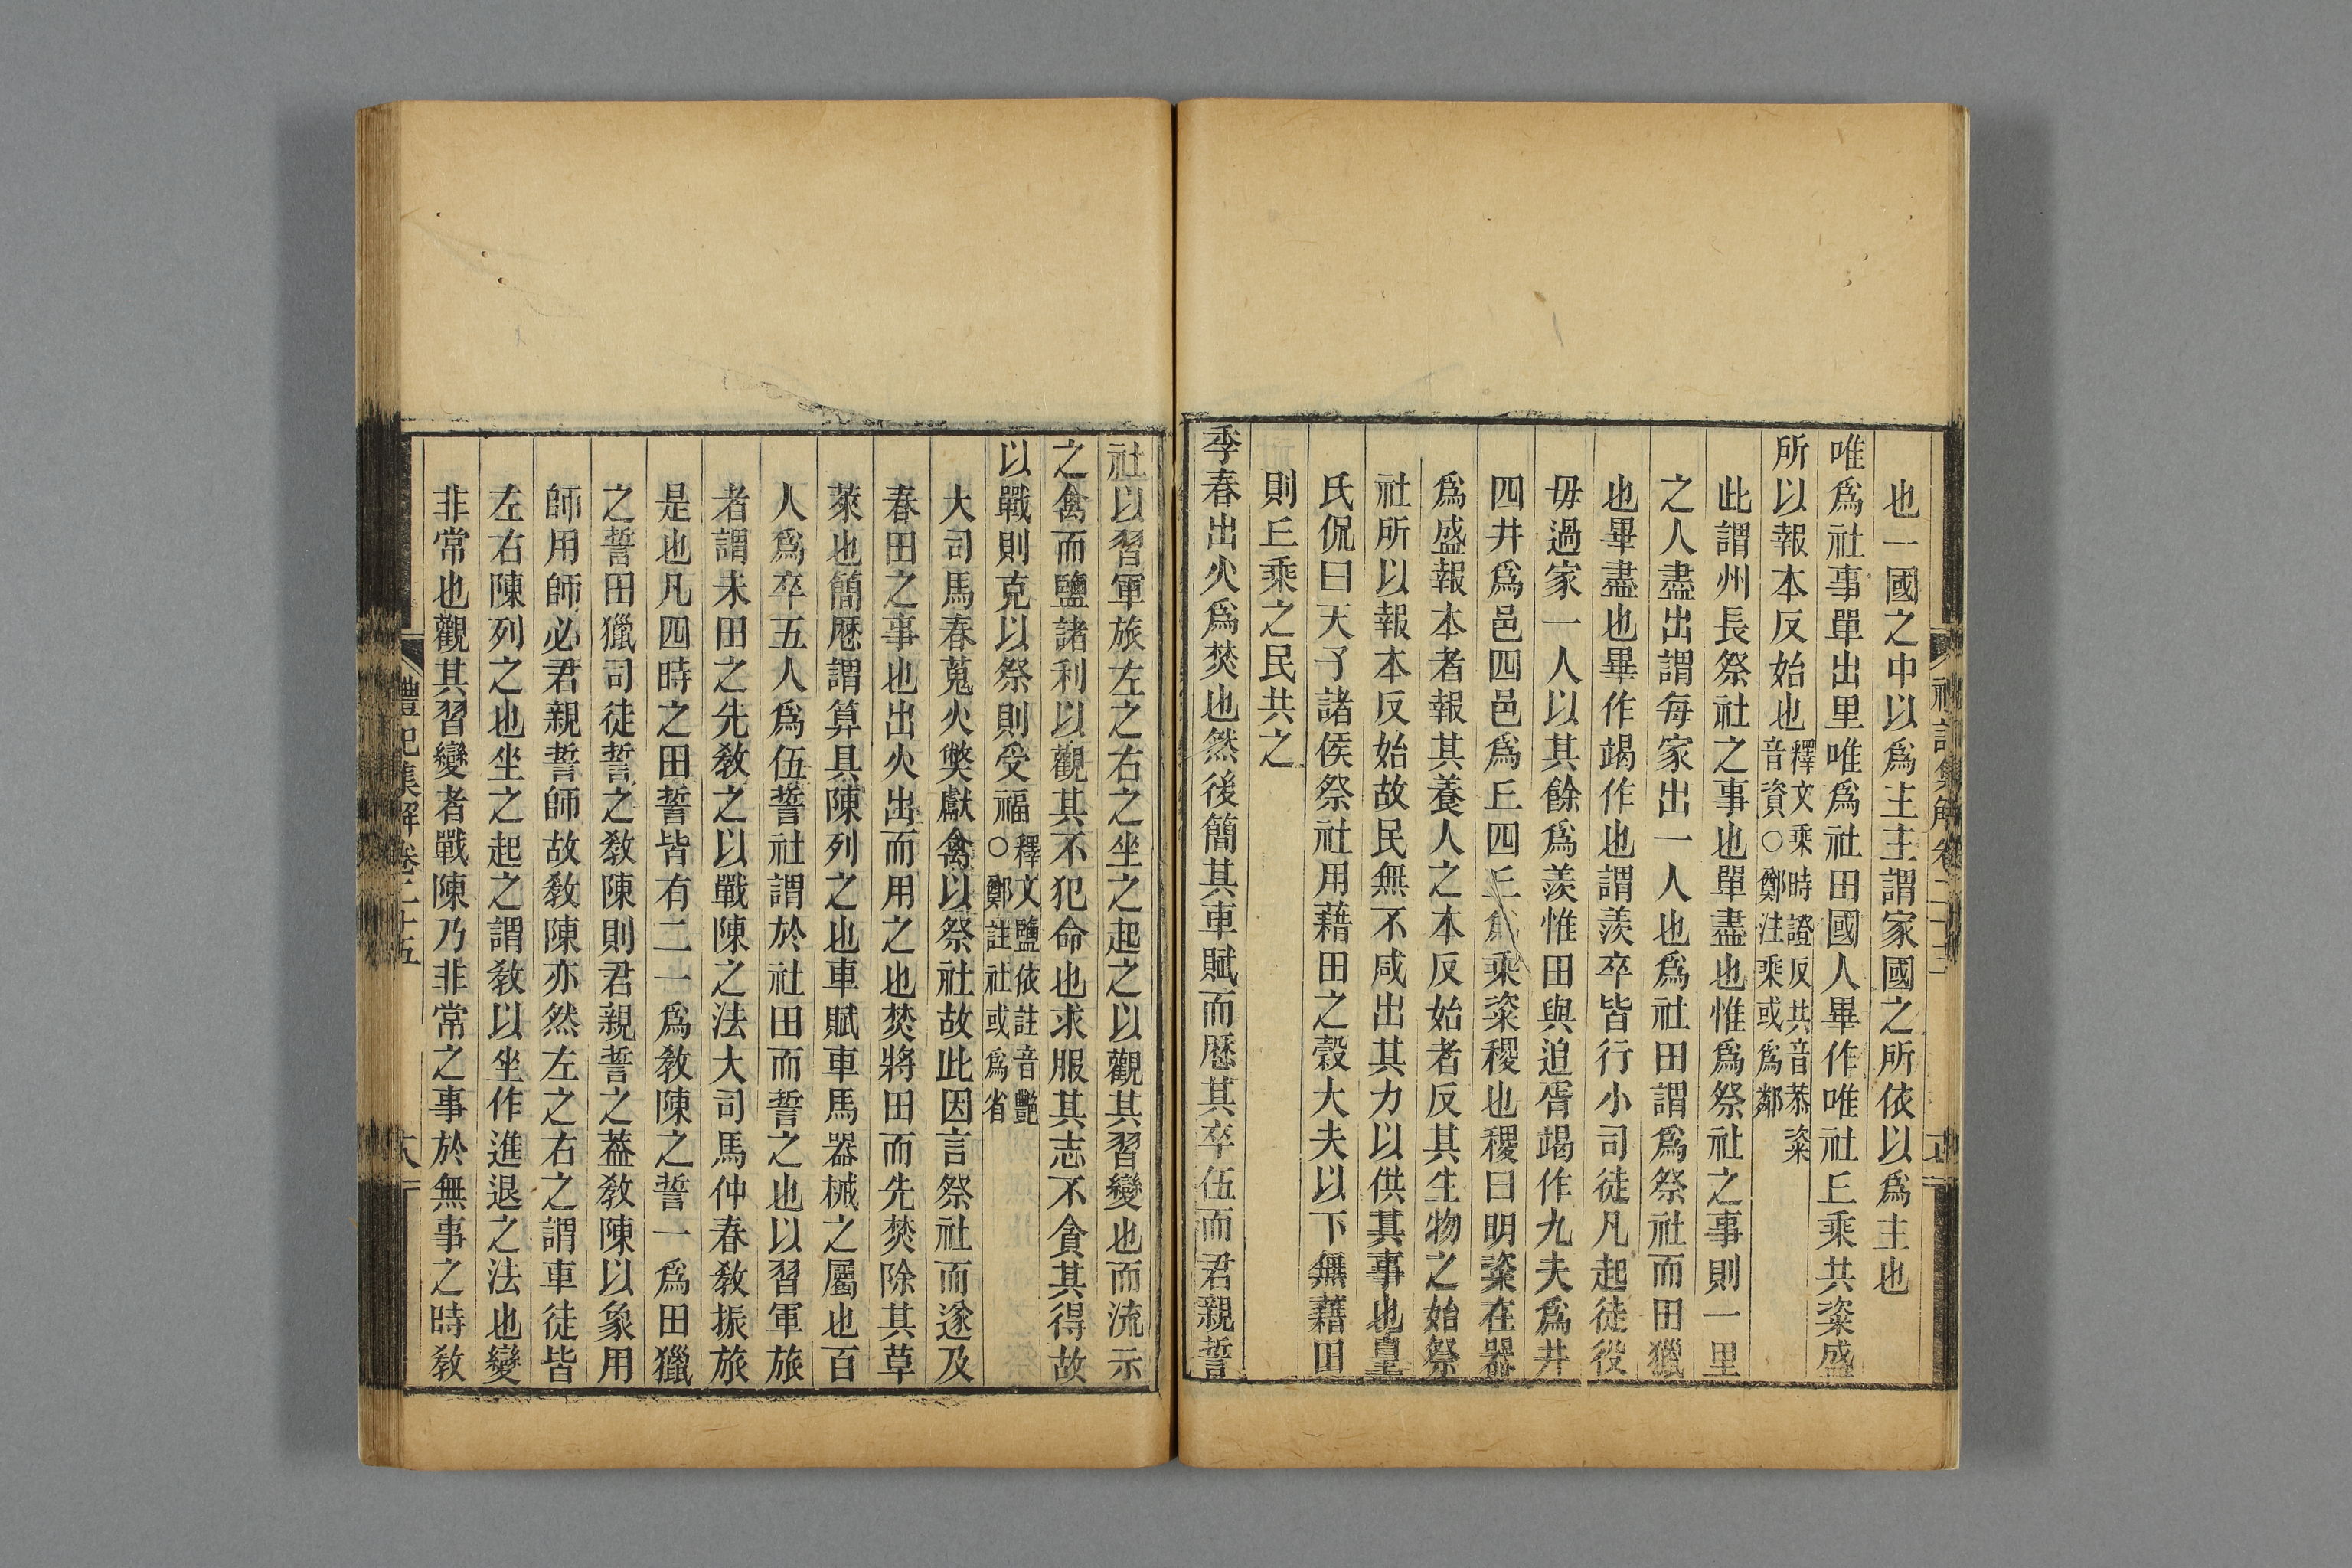 也一國之中以爲主主謂家國之所依以爲主也
唯爲社事單出里唯爲社田國人畢作唯社丘乘共粢盛
所以報本反始也釋文乘時證反共音恭粢
音資○鄭注乘或爲鄰
此謂州長祭社之事也單盡也惟爲祭社之事則一里
之人盡出謂每家出一人也爲社田謂爲祭社而田獵
也畢盡也畢作竭作也謂羨卒皆行小司徒凡起徒役
毋過家一人以其餘爲羨惟田與追胥竭作九夫爲井
四井爲邑四邑爲丘四丘爲乘粢稷也稷曰明粢在器
爲盛報本者報其養人之本反始者反其生物之始祭
社所以報本反始故民無不咸出其力以供其事也皇
氏侃曰天子諸侯祭社用藉田之穀大夫以下無藉田
則丘乘之民共之
季春出火爲焚也然後簡其車賦而歷其卒伍而君親誓
社以習軍旅左之右之坐之起之以觀其習變也而流示
之禽而鹽諸利以觀其不犯命也求服其志不貪其得故
以戰則克以祭則受福○釋文鹽依註音艷
鄭註社或爲省
大司馬春蒐火獘獻禽以祭社故此因言祭社而遂及
春田之事也出火出而用之也焚將田而先焚除其草
萊也簡歷謂算具陳列之也車賦車馬器械之屬也百
人爲卒五人爲伍誓社謂於社田而誓之也以習軍旅
者謂未田之先教之以戰陳之法大司馬仲春教振旅
是也凡四時之田誓皆有二一爲教陳之誓一爲田獵
之誓田獵司徒誓之教陳則君親誓之葢教陳以象用
師用師必君親誓師故教陳亦然左之右之謂車徒皆
左右陳列之也坐之起之謂教以坐作進退之法也變
非常也觀其習變者戰陳乃非常之事於無事之時教
禮記集解卷二十五